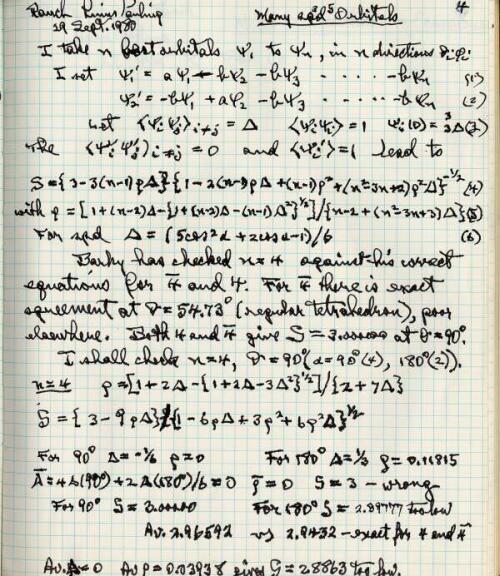 Ranch Linus Pauling Many spd⁵ Orbitals 4
29 Sept. 1980
I take n best orbitals ψ₁ to ψn, in n directions
I set ψ₁' = aψ₁ - bψ₂ - bψ₃ · · · · · - bψn (1)
ψ₂' = -bψ₁ + aψ₂ - bψ₃ · · · · · - bψn (2)
Let ⟨ψᵢψⱼ⟩ᵢ≠ⱼ = Δ ⟨ψᵢψᵢ⟩ = 1 ψᵢ(0) = 3Δ (3)
The ⟨ψᵢ'ψⱼ'⟩ᵢ≠ⱼ = 0 and ⟨ψᵢ'ψᵢ'⟩ = 1 lead to
S = {3-3(n-1)ρΔ}{1-2(n-1)ρΔ+(n-1)ρ²+(n²-3n+2)ρ²Δ}^-1/2 (4)
with ρ = [1+(n-2)Δ-{1+(n-2)Δ-(n-1)Δ²}^1/2]/{n-2+(n²-3n+3)Δ} (5)
For spd Δ = (5cos²α+2cosα-1)/6 (6)
has checked n=4 against his correct
equations for 4̅ and 4. For 4̅ there is exact
agreement at θ = 54.73° (regular tetrahedron), poor
elsewhere. Both 4 and 4̅ give S = 3.00000 at θ=90°.
I shall check n=4, θ=90° (α=90°(4), 180°(2)).
n=4 ρ=[1+2Δ-{1+2Δ-3Δ²}^1/2]/{2+7Δ}
S = {3-9ρΔ}/{1-6ρΔ+3ρ²+6ρ²Δ}^1/2
For 90° Δ=-1/6 ρ=0 For 180° Δ=1/3 ρ=0.11815
Δ̅ = 4Δ(90°)+2Δ(180°)/6=0 ρ̅=0 S=3 - wrong
For 90° S=3.00000 For 180° S=2.89777 too low
Av. 2.96592 vs 2.9432 - exact for 4 and 4̅
Av. Δ=0 Av ρ=0.03938 gives S=2.8863 too low.